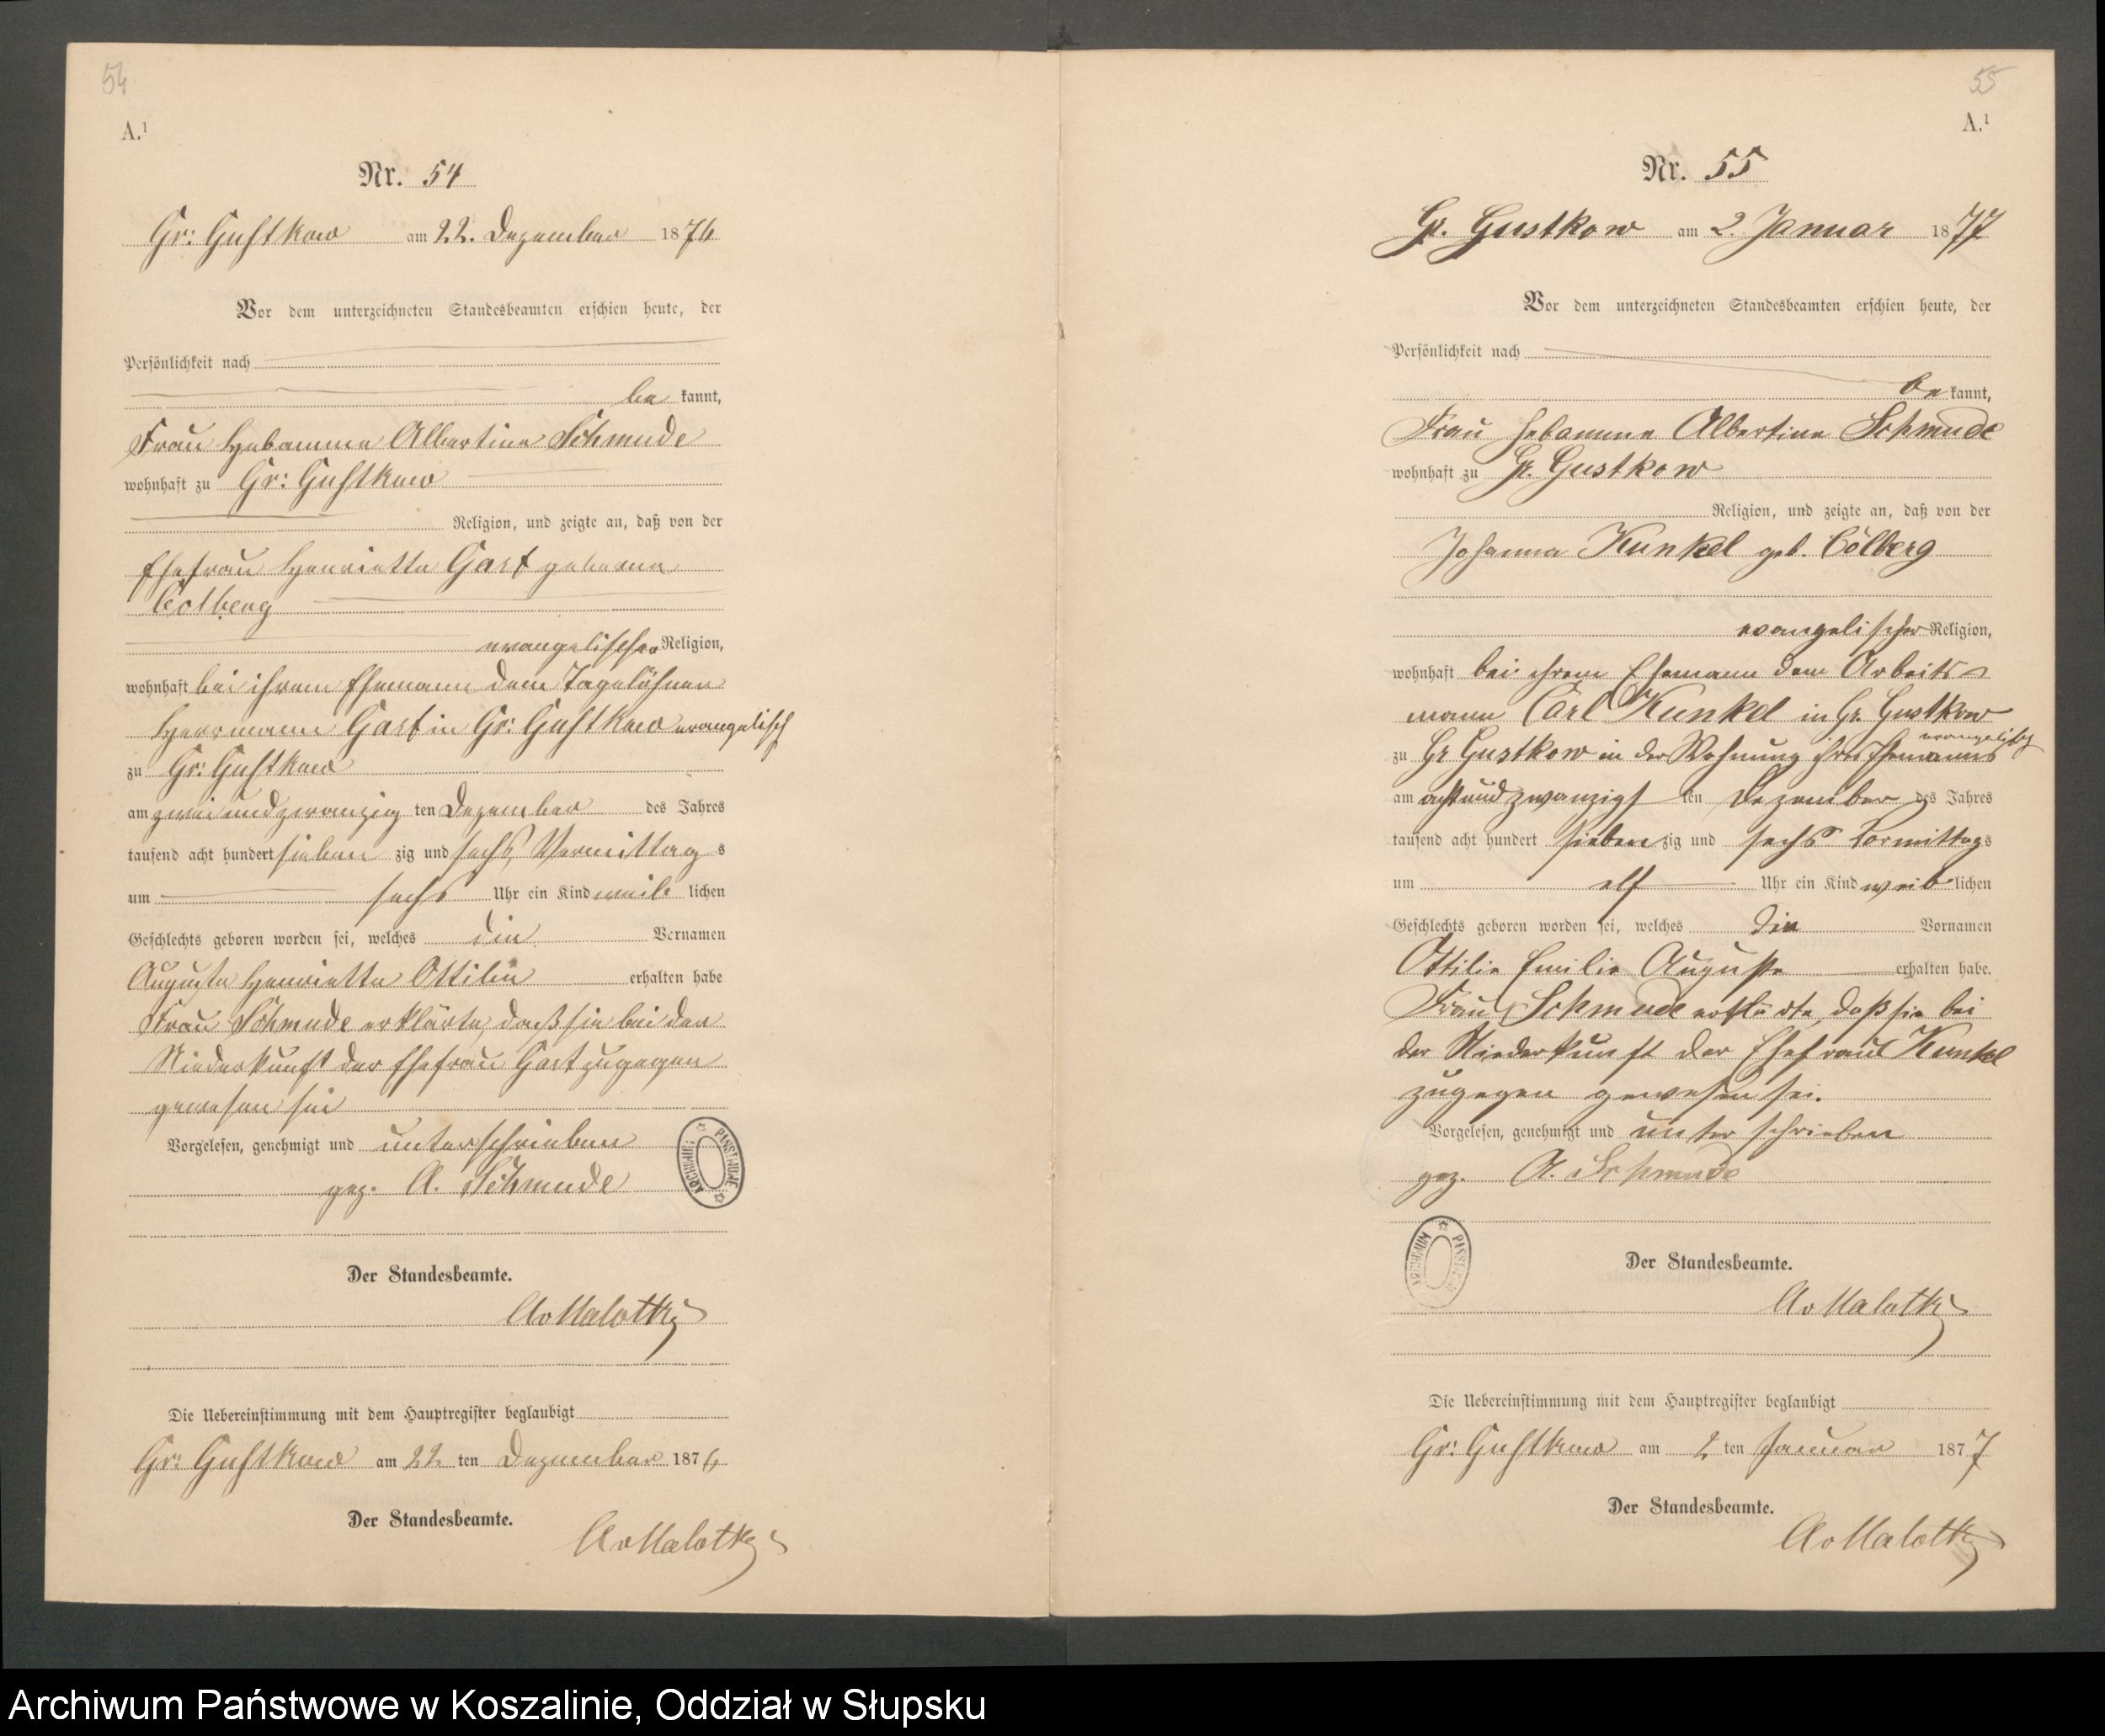 54
A.¹
Nr. 54
Gr: Gustkow am 22. Dezember 1876
Vor dem unterzeichneten Standesbeamten erschien heute, der
Persönlichkeit nach
be kannt,
Frau Hebamme Albertine Schmude
wohnhaft zu Gr: Gustkow
Religion, und zeigte an, daß von der
Ehefrau Henriette Gast geborne
Colberg
evangelischer Religion,
wohnhaft bei ihrem Ehemann dem Tagelöhner
Herrmann Gast in Gr: Gustkow evangelisch
zu Gr: Gustkow
am zwei und zwanzig ten Dezember des Jahres
tausend acht hundert sieben zig und sechs Vormittag s
um sechs Uhr ein Kind weib lichen
Geschlechts geboren worden sei, welches die Vornamen
Auguste Henriette Ottilie erhalten habe
Frau Schmude erklärte, daß sie bei der
Niederkunft der Ehefrau Gast zugegen
gewesen sei
Vorgelesen, genehmigt und unterschrieben
gez. A. Schmude
ARCHIWUM PAŃSTWOWE
Der Standesbeamte.
AvMalottky
Die Uebereinstimmung mit dem Hauptregister beglaubigt
Gr: Gustkow am 22 ten Dezember 1876
Der Standesbeamte.
AvMalottky
55
A.¹
Nr. 55
Gr. Gustkow am 2. Januar 1877
Vor dem unterzeichneten Standesbeamten erschien heute, der
Persönlichkeit nach
be kannt,
Frau Hebamme Albertine Schmude
wohnhaft zu Gr. Gustkow
Religion, und zeigte an, daß von der
Johanna Kunkel geb. Cölberg
evangelischer Religion,
wohnhaft bei ihrem Ehemann dem Arbeits-
mann Carl Kunkel in Gr. Gustkow
evangelisch
zu Gr Gustkow in der Wohnung ihres Ehemanns
am acht und zwanzigst ten Dezember des Jahres
tausend acht hundert sieben zig und sechs Vormittags
um elf Uhr ein Kind weib lichen
Geschlechts geboren worden sei, welches die Vornamen
Ottilie Emilie Auguste erhalten habe.
Frau Schmude erklärte, daß sie bei
der Niederkunft der Ehefrau Kunkel
zugegen gewesen sei.
Vorgelesen, genehmigt und unterschrieben
gez. A. Schmude
ARCHIWUM PAŃSTWOWE
Der Standesbeamte.
AvMalottky
Die Uebereinstimmung mit dem Hauptregister beglaubigt
Gr: Gustkow am 2 ten Januar 1877
Der Standesbeamte.
AvMalottky
Archiwum Państwowe w Koszalinie, Oddział w Słupsku